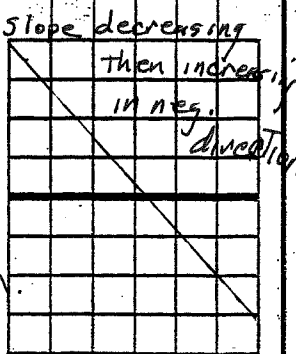 slope decreasing
then increasing
in neg.
direction